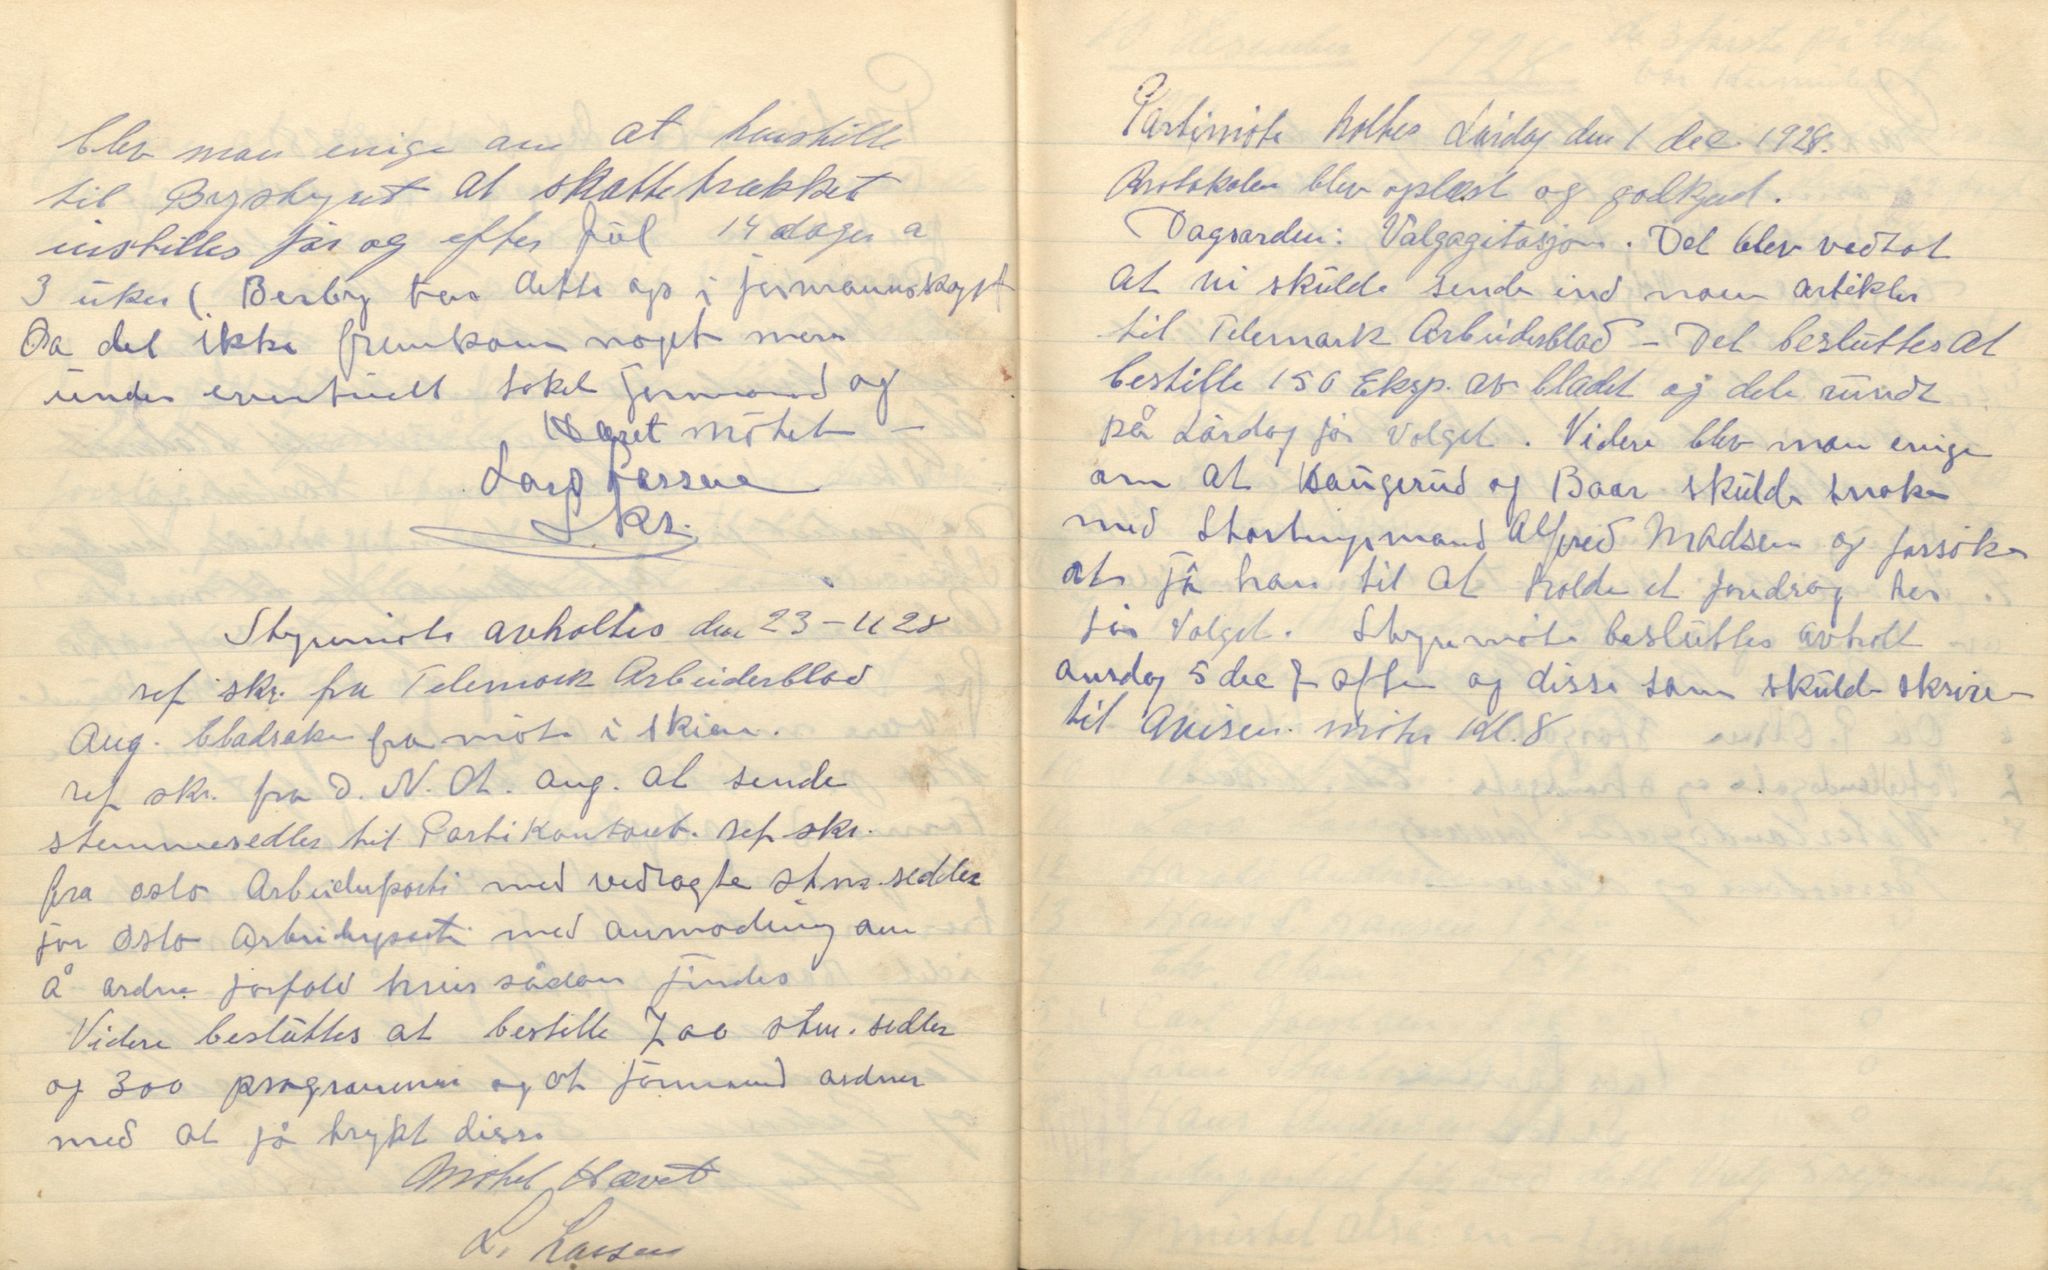 blev man enige om at henstille
til Bystyret at skattetrækket
instilles før og efter Jul 14 dager a
3 uker (. Berby tar dette op i formannskapet
Da det ikke fremkom noget mere
under eventuelt takket formand og
Hævet møtet –
Lars Lassen
Skr.
Styremøte avholtes den 23-11 28
ref skr. fra Telemark Arbeiderblad
Ang. bladsaken fra møte i Skien.
ref skr. fra D. N. A. ang. at sende
stemmesedler til Partikontoret. ref skr.
fra Oslo Arbeiderparti med vedlagte stm. sedler
for Oslo Arbeiderparti med anmodning om
å ordne forfald hvis sådan findes
Videre besluttes at bestille 700 stm. sedler
og 300 programmer og at formand ordner
med at få trykt disse
Møtet Hævet
L. Lassen
Partimøte holtes Lørdag den 1 dec 1928.
Protokolen blev oplæst og godkjent.
Dagsorden: Valgagitasjon. Det blev vedtat
at vi skulde sende ind noen artikler
til Telemark Arbeiderblad – Det besluttes at
bestille 150 Eksp. av bladet og dele rundt
på Lørdag før Valget. Videre blev man enige
om at Haugerud og Baar skulde snake
med Stortingsmand Alfred Madsen og forsøke
at få han til at holde et foredrag her
før Valget. Styremøte besluttes avholt
onsdag 5 dec 7 aften og disse som skulde skrive
til Avisen. møter kl. 8